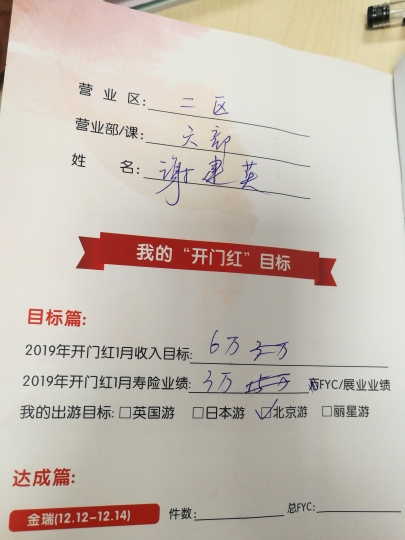 营业区：二区
营业部/课：六部
姓名：谢建英
我的“开门红”目标
目标篇：
2019年开门红1月收入目标：6万 3万
2019年开门红1月寿险业绩：3万 15万 FYC/展业业绩
我的出游目标：□英国游 □日本游 ☑北京游 □丽星游
达成篇：
金瑞(12.12-12.14) 件数： 总FYC：